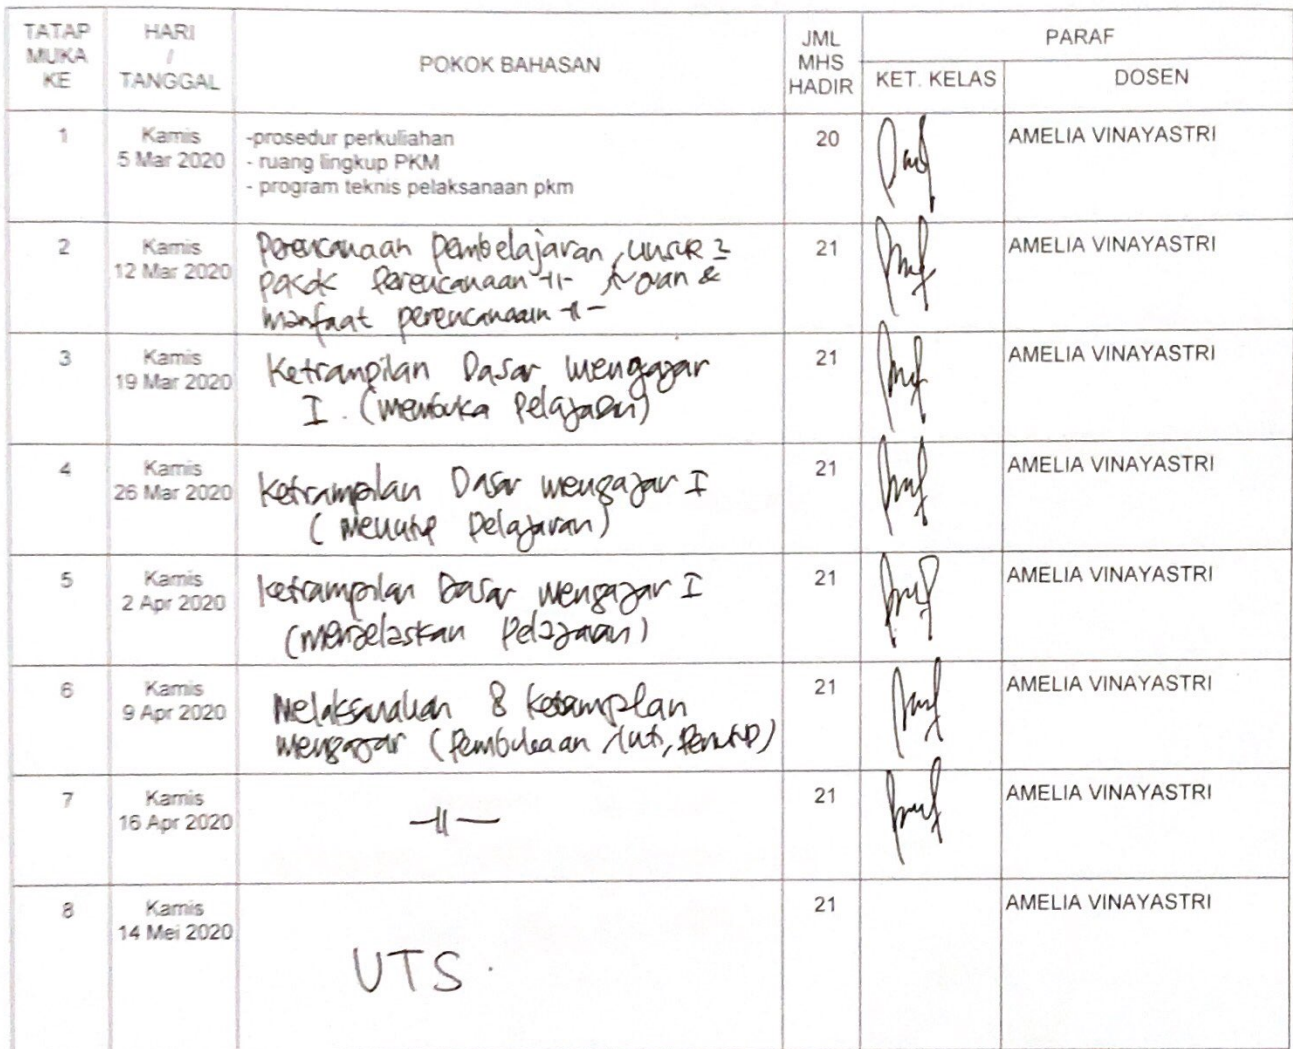 TATAP MUKA KE
HARI / TANGGAL
POKOK BAHASAN
JML MHS HADIR
PARAF
KET. KELAS
DOSEN
1
Kamis
5 Mar 2020
-prosedur perkuliahan
- ruang lingkup PKM
- program teknis pelaksanaan pkm
20
AMELIA VINAYASTRI
2
Kamis
12 Mar 2020
Perencanaan pembelajaran, unsur2
pokok Perencanaan -11- &
manfaat perencanaan -11-
21
AMELIA VINAYASTRI
3
Kamis
19 Mar 2020
Ketrampilan Dasar mengajar
I. (membuka Pelajaran)
21
AMELIA VINAYASTRI
4
Kamis
26 Mar 2020
Ketrampilan Dasar mengajar I
(menutup Pelajaran)
21
AMELIA VINAYASTRI
5
Kamis
2 Apr 2020
Ketrampilan Dasar mengajar I
(menjelaskan Pelajaran)
21
AMELIA VINAYASTRI
6
Kamis
9 Apr 2020
Melaksanakan 8 Ketrampilan
mengajar (Pembukaan, inti, Penutup)
21
AMELIA VINAYASTRI
7
Kamis
16 Apr 2020
-11-
21
AMELIA VINAYASTRI
8
Kamis
14 Mei 2020
UTS.
21
AMELIA VINAYASTRI